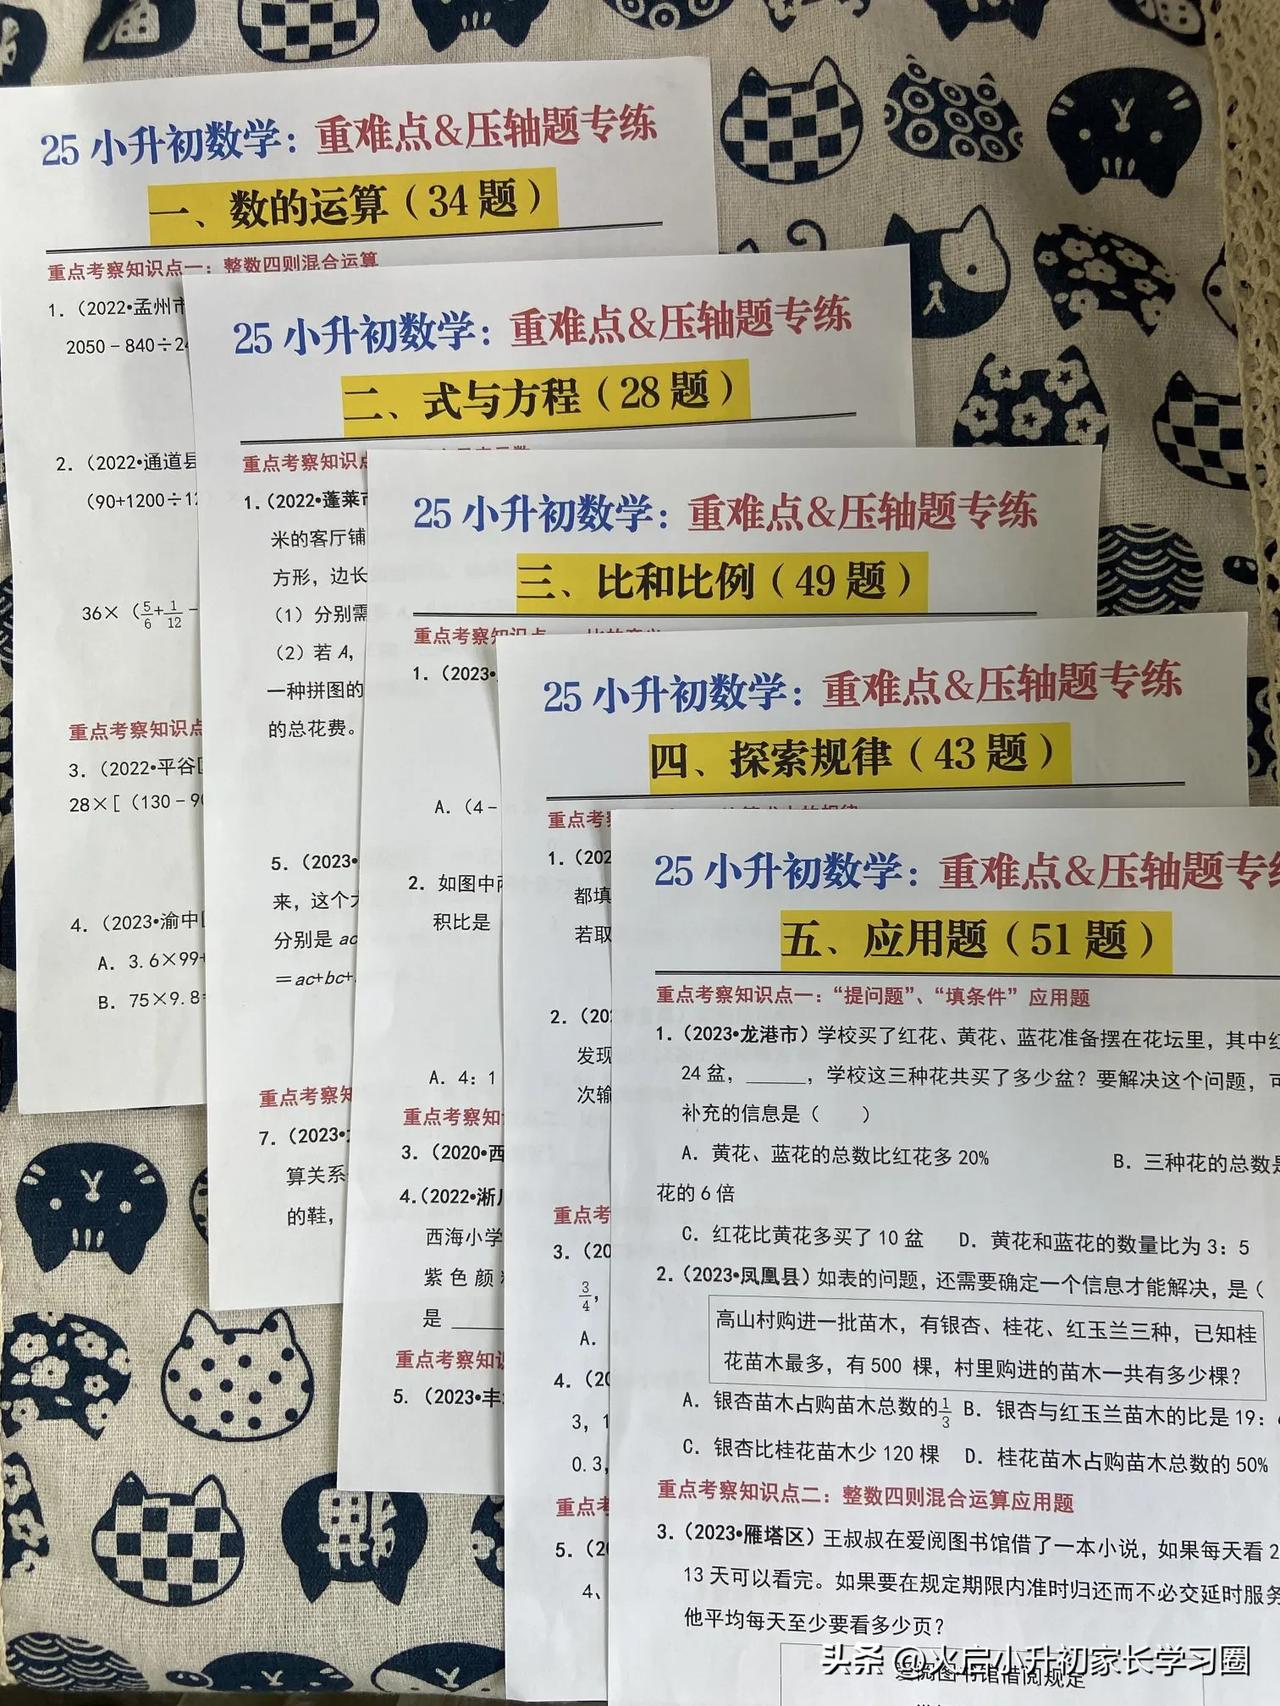 25 小升初数学：重难点&压轴题专练
一、数的运算（34 题）
重点考察知识点一：整数四则混合运算
1.（2022•孟州市
2050－840÷24
2.（2022•通道县
（90+1200÷12
36×（5/6+1/12－
重点考察知识点
3.（2022•平谷区
28×[（130－90
4.（2023•渝中区
A. 3.6×99+
B. 75×9.8
25 小升初数学：重难点&压轴题专练
二、式与方程（28 题）
重点考察知识点
1.（2022•蓬莱市
米的客厅铺
方形，边长
（1）分别需
（2）若 A，
一种拼图的
的总花费。
5.（2023•
来，这个大
分别是 ac
＝ac+bc+
重点考察知
7.（2023•
算关系
的鞋，
25 小升初数学：重难点&压轴题专练
三、比和比例（49 题）
重点考察知识点一：比的意义
1.（2023•
A.（4－
2. 如图中两
积比是
A. 4：1
重点考察知
3.（2020•西
4.（2022•淅川
西海小学
紫色颜料
是
重点考察知识
5.（2023•丰
25 小升初数学：重难点&压轴题专练
四、探索规律（43 题）
重点考
1.（202
都填
若取
2.（202
发现
次输
重点考
3.（20
3/4，
A.
4.（20
3，1
0.3，
重点考
5.（20
4、
25 小升初数学：重难点&压轴题专练
五、应用题（51 题）
重点考察知识点一：“提问题”、“填条件”应用题
1.（2023•龙港市）学校买了红花、黄花、蓝花准备摆在花坛里，其中红
24 盆，______，学校这三种花共买了多少盆？要解决这个问题，可
补充的信息是（　　）
A. 黄花、蓝花的总数比红花多 20% B. 三种花的总数是
花的 6 倍
C. 红花比黄花多买了 10 盆 D. 黄花和蓝花的数量比为 3：5
2.（2023•凤凰县）如表的问题，还需要确定一个信息才能解决，是（
高山村购进一批苗木，有银杏、桂花、红玉兰三种，已知桂
花苗木最多，有 500 棵，村里购进的苗木一共有多少棵？
A. 银杏苗木占购苗木总数的1/3 B. 银杏与红玉兰苗木的比是 19：
C. 银杏比桂花苗木少 120 棵 D. 桂花苗木占购苗木总数的 50%
重点考察知识点二：整数四则混合运算应用题
3.（2023•雁塔区）王叔叔在爱阅图书馆借了一本小说，如果每天看 2
13 天可以看完。如果要在规定期限内准时归还而不必交延时服务
他平均每天至少要看多少页？
爱阅图书馆借阅规定
头条 @火启小升初家长学习圈